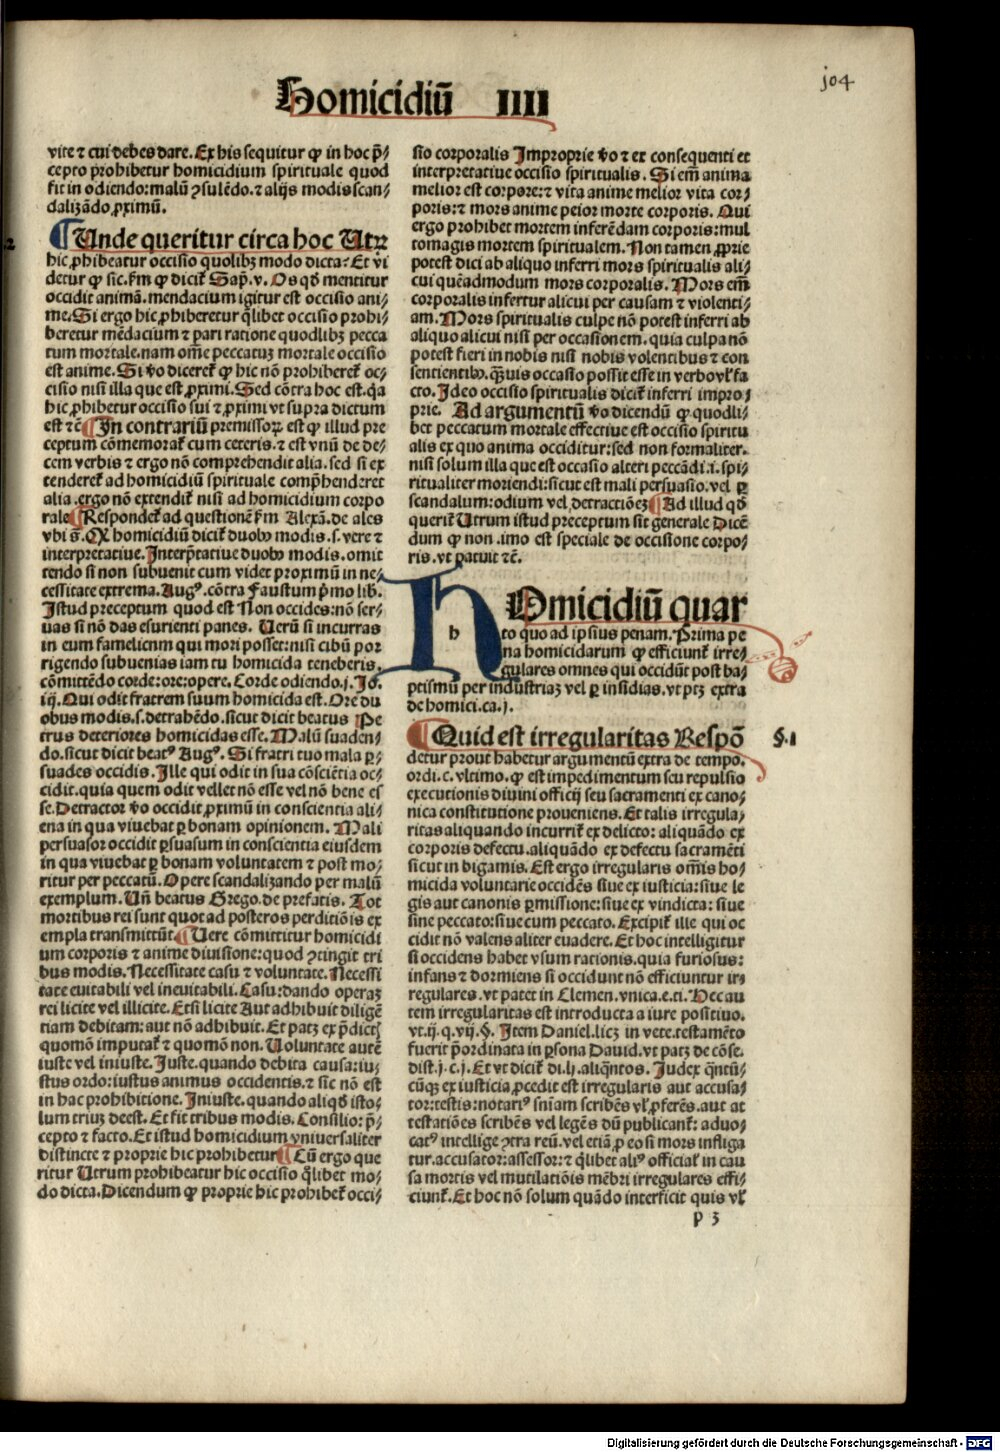 Homicidiū IIII
jo4
vite ⁊ cui debes dare. Ex his sequitur ꝙ in hoc p̄-
cepto prohibetur homicidium spirituale quod
fit in odiendo: malū ꝯsulēdo. ⁊ alijs modis scan-
dalizādo ꝓximū.
2
¶ Unde queritur circa hoc Utrꝝ
hic ꝓhibeatur occisio quolibꝫ modo dicta: Et vi
detur ꝙ sic. ẜm ꝙ dicit̉ Sap̄. v. Os qd̄ mentitur
occidit animā. mendacium igitur est occisio ani-
me. Si ergo hic ꝓhiberetur q̄libet occisio prohi-
beretur mēdacium ⁊ pari ratione quodlibꝫ pecca
tum mortale. nam om̄e peccatuꝫ mortale occisio
est anime. Si v̄o diceret̉ ꝙ hic nō prohiberet̉ oc-
cisio nisi illa que est ꝓximi. Sed cōtra hoc est. q̄a
hic ꝓhibetur occisio sui ⁊ ꝓximi vt supra dictum
est ⁊c̄ ¶ In contrariū premissoꝝ est ꝙ illud pre
ceptum cōmemorat̉ cum ceteris. ⁊ est vnū de de-
cem verbis ⁊ ergo nō comprehendit alia. sed si ex
tenderet̉ ad homicidiū spirituale comp̄henderet
alia. ergo nō extendit̉ nisi ad homicidium corpo
rale ¶ Respondet̉ ad questionē ẜm Alexā. de ales
vbi s̄. Qꝫ homicidiū dicit̉ duobꝰ modis. s. vere ⁊
interpretatiue. Interp̄tatiue duobꝰ modis. omit
tendo si non subuenit cum videt proximū in ne-
cessitate extrema. Augꝰ. cōtra Faustum p̄mo lib.
Istud preceptum quod est Non occides: nō ser-
uas si nō das esurienti panes. Uerū si incurras
in eum famelicum qui mori posset: nisi cibū por
rigendo subuenias iam tu homicida teneberis.
cōmittēdo corde: ore: opere. Corde odiendo. j. Jo.
iij. Qui odit fratrem suum homicida est. Ore du
obus modis. s. detrahēdo. sicut dicit beatus Pe
trus deteriores homicidas esse. Malū suaden-
do. sicut dicit beatꝰ Augꝰ. Si fratri tuo mala ꝑ-
suades occidis. Ille qui odit in sua cōsciētia oc-
cidit. quia quem odit vellet nō esse vel nō bene es
se. Detractor v̄o occidit ꝓximū in conscientia ali-
ena in qua viuebat ꝑ bonam opinionem. Mali
persuasor occidit ꝑsuasum in conscientia eiusdem
in qua viuebat ꝑ bonam voluntatem ⁊ post mo-
ritur per peccatū. Opere scandalizando per malū
exemplum. Un̄ beatus Grego. de prefatis. Tot
mortibus rei sunt quot ad posteros perditiōis ex
empla transmittūt. ¶ Uere cōmittitur homicidi
um corporis ⁊ anime diuisione: quod ꝯtingit tri
bus modis. Necessitate casu ⁊ voluntate. Necessi
tate euitabili vel ineuitabili. Casu: dando operaꝫ
rei licite vel illicite. Et si licite Aut adhibuit diligē
tiam debitam: aut nō adhibuit. Et patꝫ ex p̄dictꝭ
quomō imputat̉ ⁊ quomō non. Uoluntate autē
iuste vel iniuste. Juste. quando debita causa: iu-
stus ordo: iustus animus occidentis. ⁊ sic nō est
in hac prohibitione. Iniuste. quando aliqd̄ isto-
lum triuꝫ deest. Et fit tribus modis. Consilio: p̄-
cepto ⁊ facto. Et istud homicidium vniuersaliter
distincte ⁊ proprie hic prohibetur ¶ Cū ergo que
ritur Utrum prohibeatur hic occisio q̄libet mo-
do dicta. Dicendum ꝙ proprie hic prohibet̉ occi-
sio corporalis Improprie v̄o ⁊ ex consequenti et
interpretatiue occisio spiritualis. Si em̄ anima
melior est corpore: ⁊ vita anime melior vita cor-
poris: ⁊ mors anime peior morte corporis. Qui
ergo prohibet mortem inferēdam corporis: mul
tomagis mortem spiritualem. Non tamen ꝓprie
potest dici ab aliquo inferri mors spiritualis ali-
cui quēadmodum mors corporalis. Mors em̄
corporalis infertur alicui per causam ⁊ violenti-
am. Mors spiritualis culpe nō potest inferri ab
aliquo alicui nisi per occasionem. quia culpa nō
potest fieri in nobis nisi nobis volentibus ⁊ con
sentientibꝰ. q̄ꝫuis occasio possit esse in verbo vl̉ fa
cto. Ideo occisio spiritualis dicit̉ inferri impro-
prie. Ad argumentū v̄o dicendū ꝙ quodli-
bet peccatum mortale effectiue est occisio spiritu
alis ex quo anima occiditur: sed non formaliter.
nisi solum illa que est occasio alteri peccādi. i. spi-
ritualiter moriendi: sicut est mali persuasio. vel ꝑ
scandalum: odium vel detractiōeꝫ ¶ Ad illud qd̄
querit̉ Utrum istud preceptum sit generale Dicē
dum ꝙ non. imo est speciale de occisione corpo-
ris. vt patuit ⁊c̄.
h
HOmicidiū quar
to quo ad ipsius penam. Prima pe
na homicidarum ꝙ efficiunt̉ irre-
gulares omnes qui occidūt post ba-
ptismū per industriaꝫ vel ꝑ insidias. vt ptꝫ extra
de homici. ca. j.
¶ Quid est irregularitas Respō
§. 1
detur prout habetur argumentū extra de tempo.
ordi. c. vltimo. ꝙ est impedimentum seu repulsio
executionis diuini officij seu sacramenti ex cano-
nica constitutione proueniens. Et talis irregula-
ritas aliquando incurrit̉ ex delicto: aliquādo ex
corporis defectu. aliquādo ex defectu sacramēti
sicut in bigamis. Est ergo irregularis om̄is ho-
micida voluntarie occidēs siue ex iusticia: siue le
gis aut canonis ꝑmissione: siue ex vindicta: siue
sine peccato: siue cum peccato. Excipit̉ ille qui oc
cidit nō valens aliter euadere. Et hoc intelligitur
si occidens habet vsum rationis. quia furiosus:
infans ⁊ dormiens si occidunt nō efficiuntur ir-
regulares. vt patet in Clemen. vnica. e. ti. Hec au
tem irregularitas est introducta a iure positiuo.
vt. ij. q. vij. §. Item Daniel. licꝫ in vete. testamēto
fuerit p̄ordinata in ꝑsona Dauid. vt patꝫ de cōse.
dist. j. c. j. Et vt dicit̉ di. lj. aliq̄ntos. Judex q̄ntū-
cūqꝫ ex iusticia ꝓcedit est irregularis aut accusa-
tor: testis: notariꝰ sn̄iam scribēs vl̉ ꝓferēs. aut at
testatiōes scribēs vel legēs dū publicant̉: aduo-
catꝰ intellige ꝯtra reū. vel etiā ꝓ eo si mors infliga
tur. accusator: assessor: ⁊ q̄libet aliꝰ official̉ in cau
sa mortis vel mutilatiōis mēbri irregulares effi-
ciunt̉. Et hoc nō solum quādo interficit quis vl̉
p 3
Digitalisierung gefördert durch die Deutsche Forschungsgemeinschaft - DFG